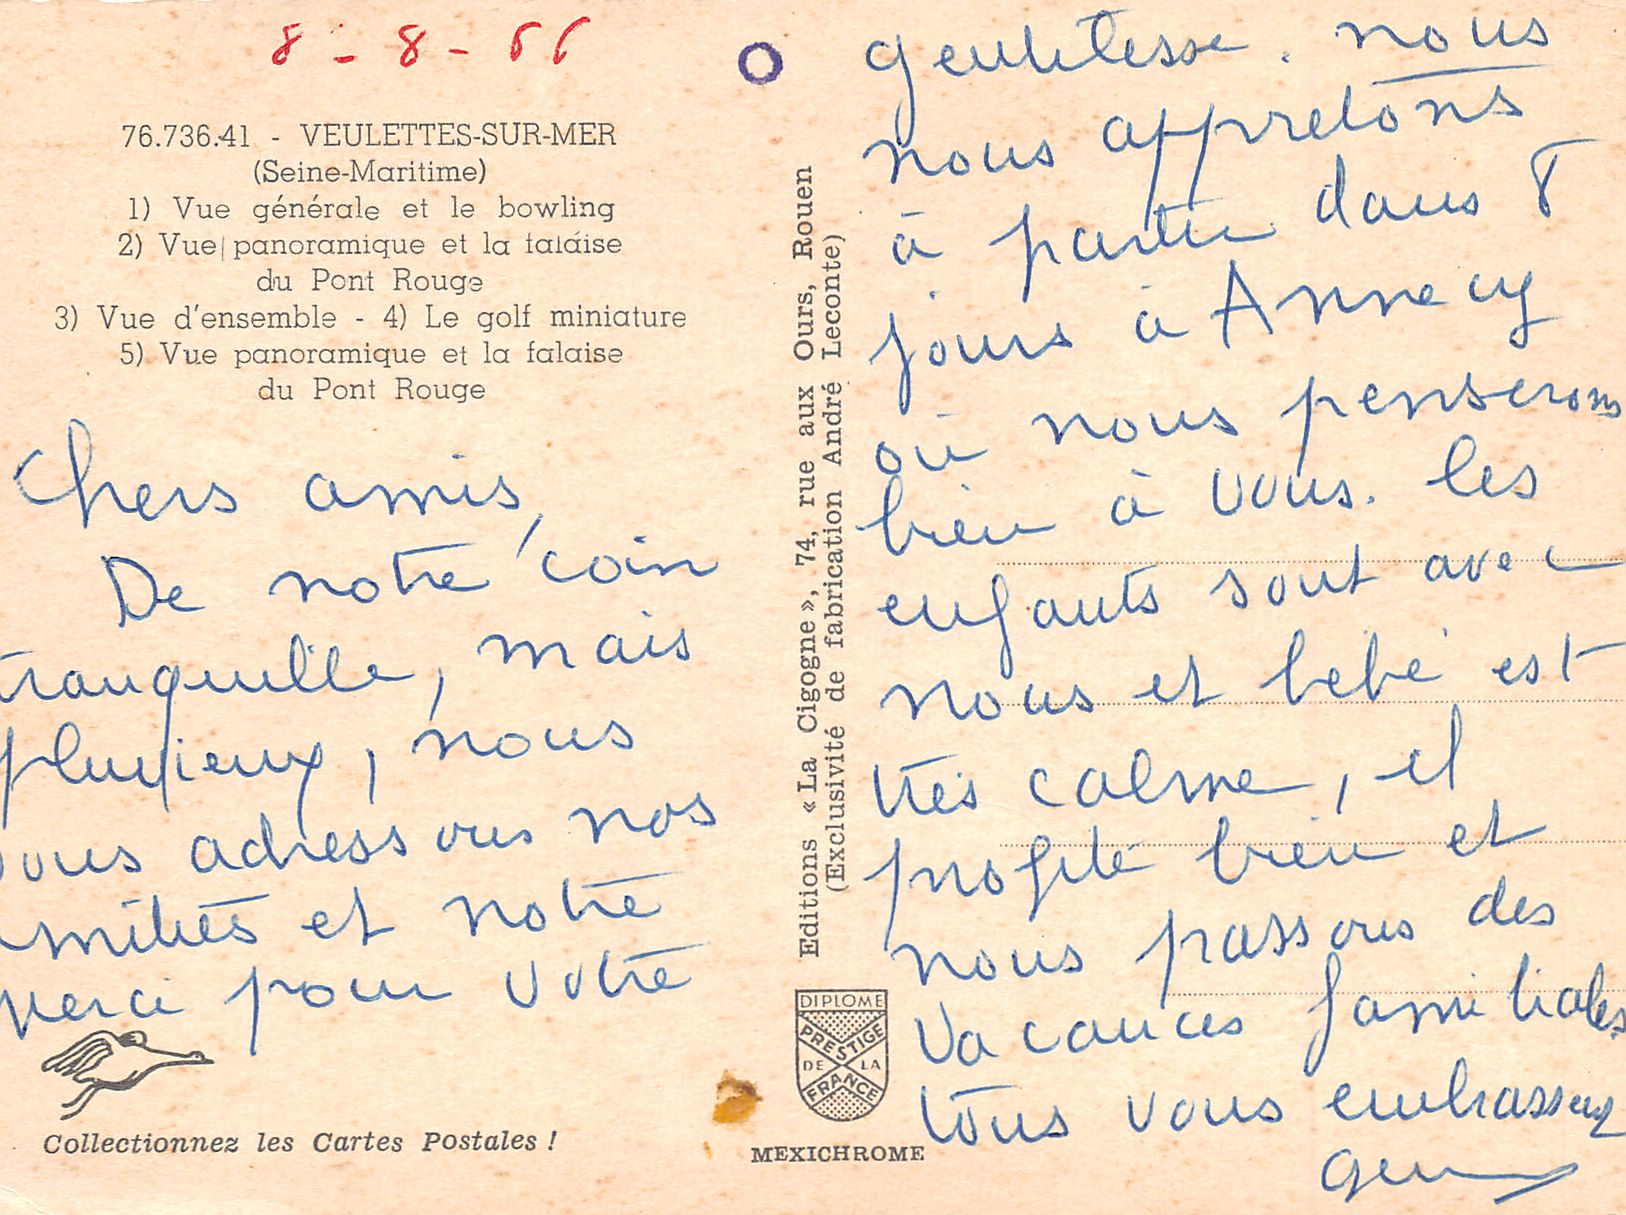 8 - 8 - 66
76.736.41 - VEULETTES-SUR-MER
(Seine-Maritime)
1) Vue générale et le bowling
2) Vue panoramique et la falaise
du Pont Rouge
3) Vue d'ensemble - 4) Le golf miniature
5) Vue panoramique et la falaise
du Pont Rouge
Chers amis,
De notre coin
tranquille, mais
pluvieux, nous
vous adressons nos
amitiés et notre
merci pour votre
Collectionnez les Cartes Postales !
Editions « La Cigogne », 74, rue aux Ours, Rouen
(Exclusivité de fabrication André Leconte)
DIPLOME
PRESTIGE
DE LA
FRANCE
MEXICHROME
gentillesse. nous
nous appretons
à partir dans 8
jours à Annecy
où nous penserons
bien à vous. les
enfants sont avec
nous et bébé est
très calme, il
profite bien et
nous passons des
vacances familiales
tous vous embrassent